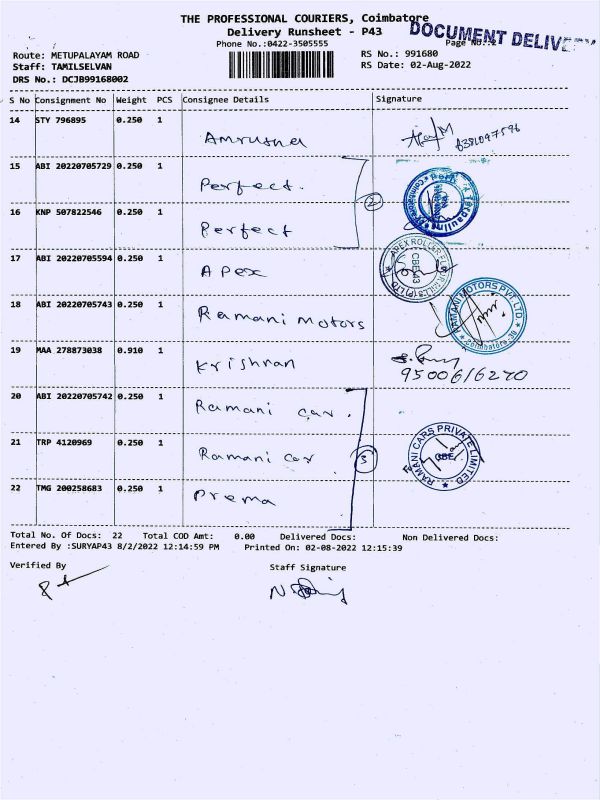 THE PROFESSIONAL COURIERS, Coimbatore
DOCUMENT DELIV
Delivery Runsheet - P43
Phone No.:0422-3505555
Page No.:2
Route: METUPALAYAM ROAD
RS No.: 991680
Staff: TAMILSELVAN
RS Date: 02-Aug-2022
DRS No.: DCJB99168002
S No Consignment No Weight PCS Consignee Details Signature
14 STY 796895 0.250 1 Amrusha
15 ABI 20220705729 0.250 1 Perfect.
2
16 KNP 507822546 0.250 1 Perfect
17 ABI 20220705594 0.250 1 Apex
APEX ROLLER FLOUR MILLS (P) LTD
CBE-43
18 ABI 20220705743 0.250 1 Ramani Motors
RAMANI MOTORS PVT. LTD.
Coimbatore-30
19 MAA 278873038 0.910 1 Krishnan
9500616270
20 ABI 20220705742 0.250 1 Ramani car.
21 TRP 4120969 0.250 1 Ramani car
3
RAMANI CARS PRIVATE LIMITED
CBE
22 TMG 200258683 0.250 1 Prema
Total No. Of Docs: 22 Total COD Amt: 0.00 Delivered Docs: Non Delivered Docs:
Entered By :SURYAP43 8/2/2022 12:14:59 PM Printed On: 02-08-2022 12:15:39
Verified By Staff Signature